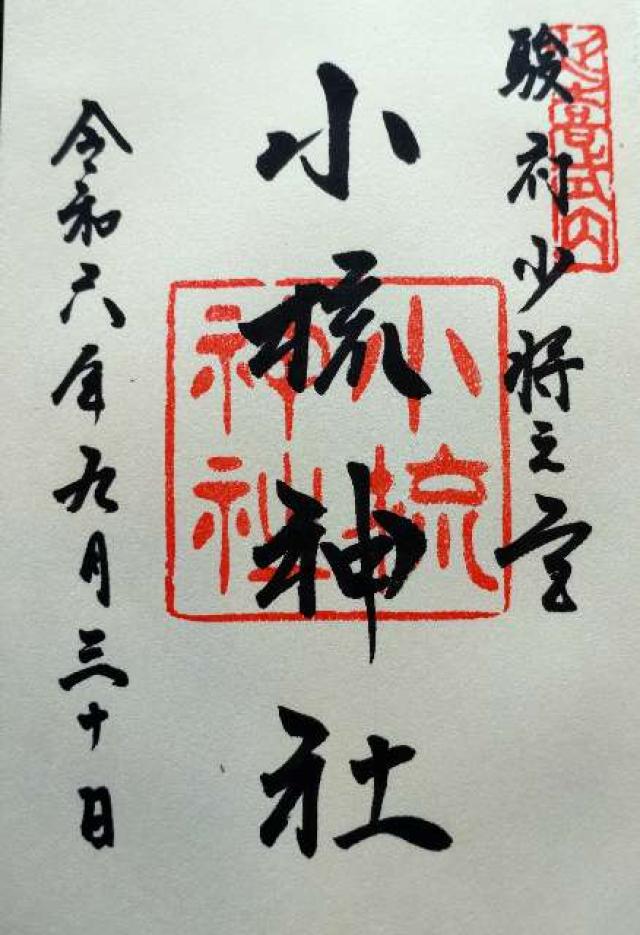 延喜式内
駿府少将之宮
小梳神社
小梳
神社
令和六年九月三十日